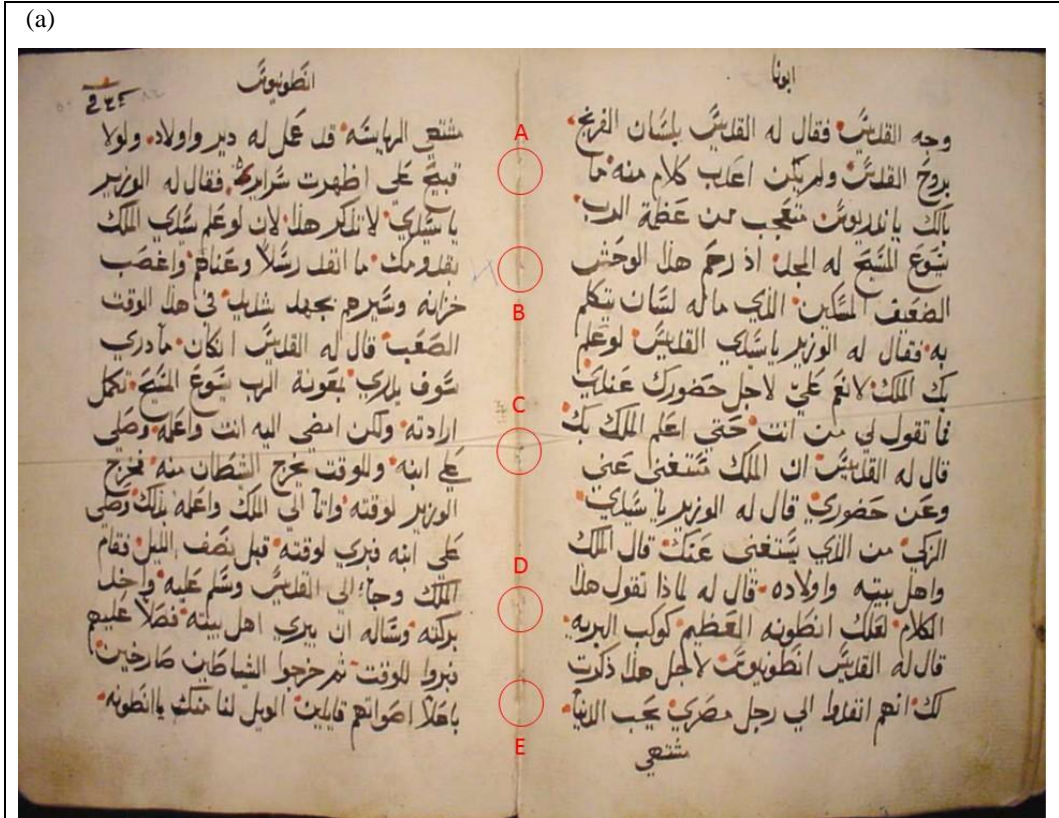 (a)
ابونا
وجه القديس فقال له القديس بلسان الفرنج
بروح القدس ولم يكن اعذب كلام منه ما
بالك ياندريوس متعجب من عظمة الرب
يسوع المسيح له المجد اذ رحم هذا الوحش
الضعيف المسكين الذي ما له لسان يتكلم
به فقال له الوزير يا سيدي القديس لو علم
بك الملك لانعم علي لاجل حضورك عندي
فما تقول لي من انت حتي اعلم الملك بك
قال له القديس ان الملك مستغني عني
وعن حضوري قال له الوزير يا سيدي
الزكي من الذي يستغني عنك قال الملك
واهل بيته واولاده قال له لماذا تقول هذا
الكلام لعلك انطونه العظيم كوكب البريه
قال له القديس انطونيوس لاجل هذا ذكرت
لك انهم انفذوا الي رجل مصري يحب الدنيا
مشتهي
انطونيوس
مشتهي الرياسه قد عمل له دير واولاد ولولا
قبيح علي اظهرت سرايره فقال له الوزير
يا سيدي لا تذكر هذا لان لو علم سيدي الملك
بقدومك ما انفد رسلا وعناهم واغصب
خزانه وسيرهم بجهد شديد في هذا الوقت
الصعب قال له القديس انكان ما دري
سوف يدري بمعونة الرب يسوع المسيح تكمل
ارادته ولكن امضي اليه انت واعلمه وصلي
علي ابنه وللوقت يخرج الشيطان منه فخرج
الوزير لوقته واتا الي الملك واعلمه بذلك وصلي
علي ابنه فبري لوقته قبل نصف الليل فقام
الملك وجا الي القديس وسلم عليه واخد
بركته وساله ان يبري اهل بيته فصلا عليهم
فبروا للوقت ثم خرجوا الشياطين صارخين
باعلا اصواتهم قايلين الويل لنا منك يا انطونه
A
B
C
D
E